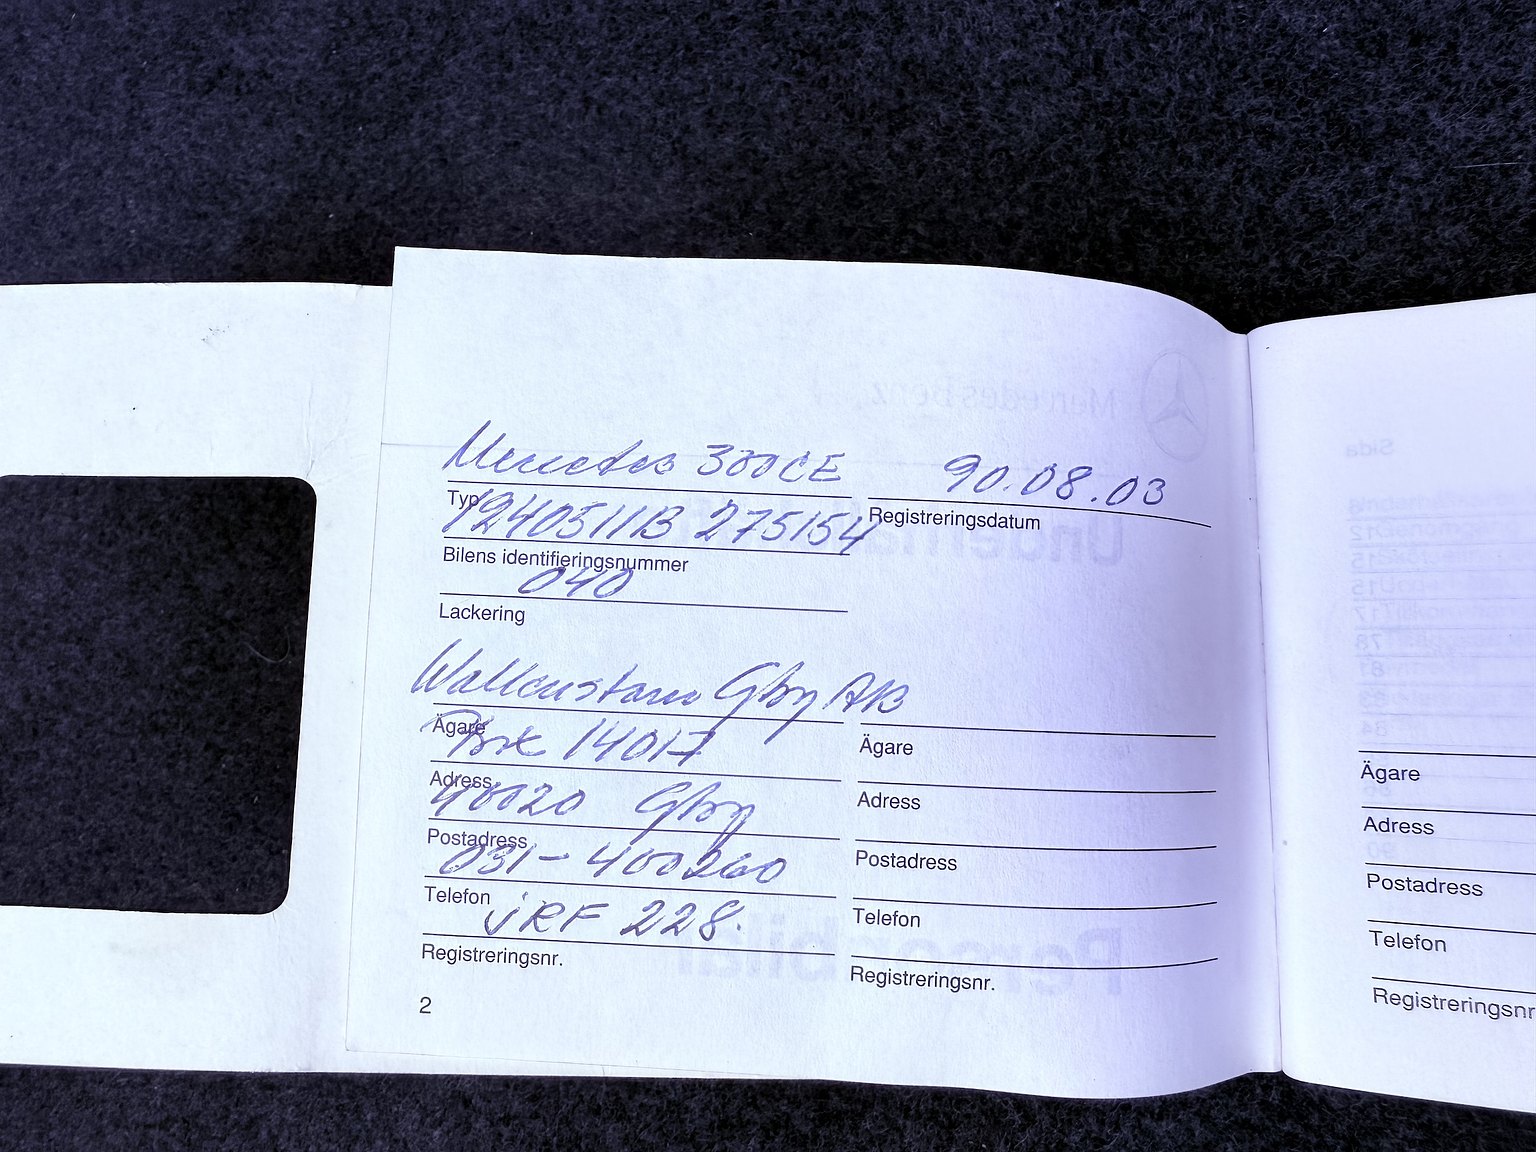 Mercedes 300CE 90.08.03
Typ Registreringsdatum
1240511B 275154
Bilens identifieringsnummer
040
Lackering
Wallenstam Gbg AB
Ägare Ägare
Box 14017
Adress Adress
40020 Gbg
Postadress Postadress
031-400260
Telefon Telefon
JRF 228.
Registreringsnr. Registreringsnr.
2
Ägare
Adress
Postadress
Telefon
Registreringsnr